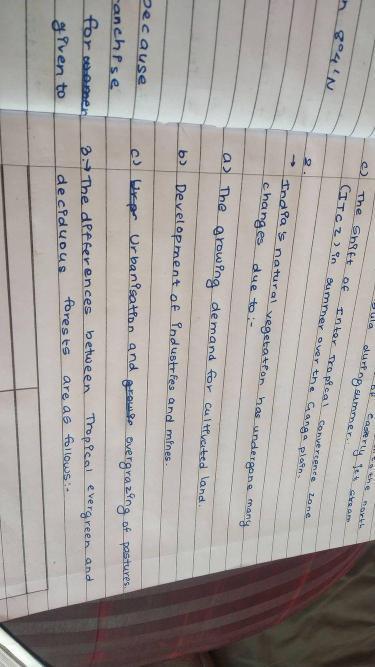 n 8°4'N
because
anchise
for women
given to
of easterly jet stream
sula during summer.
c) The shift of Inter Tropical Convergence zone
(ITCZ) in summer over the Ganga plain.
2.
→ India's natural vegetation has undergone many
changes due to:-
a) The growing demand for cultivated land.
b) Development of industries and mines.
c) Urbanisation and overgrazing of pastures.
3.→ The differences between Tropical evergreen and
deciduous forests are as follows:-